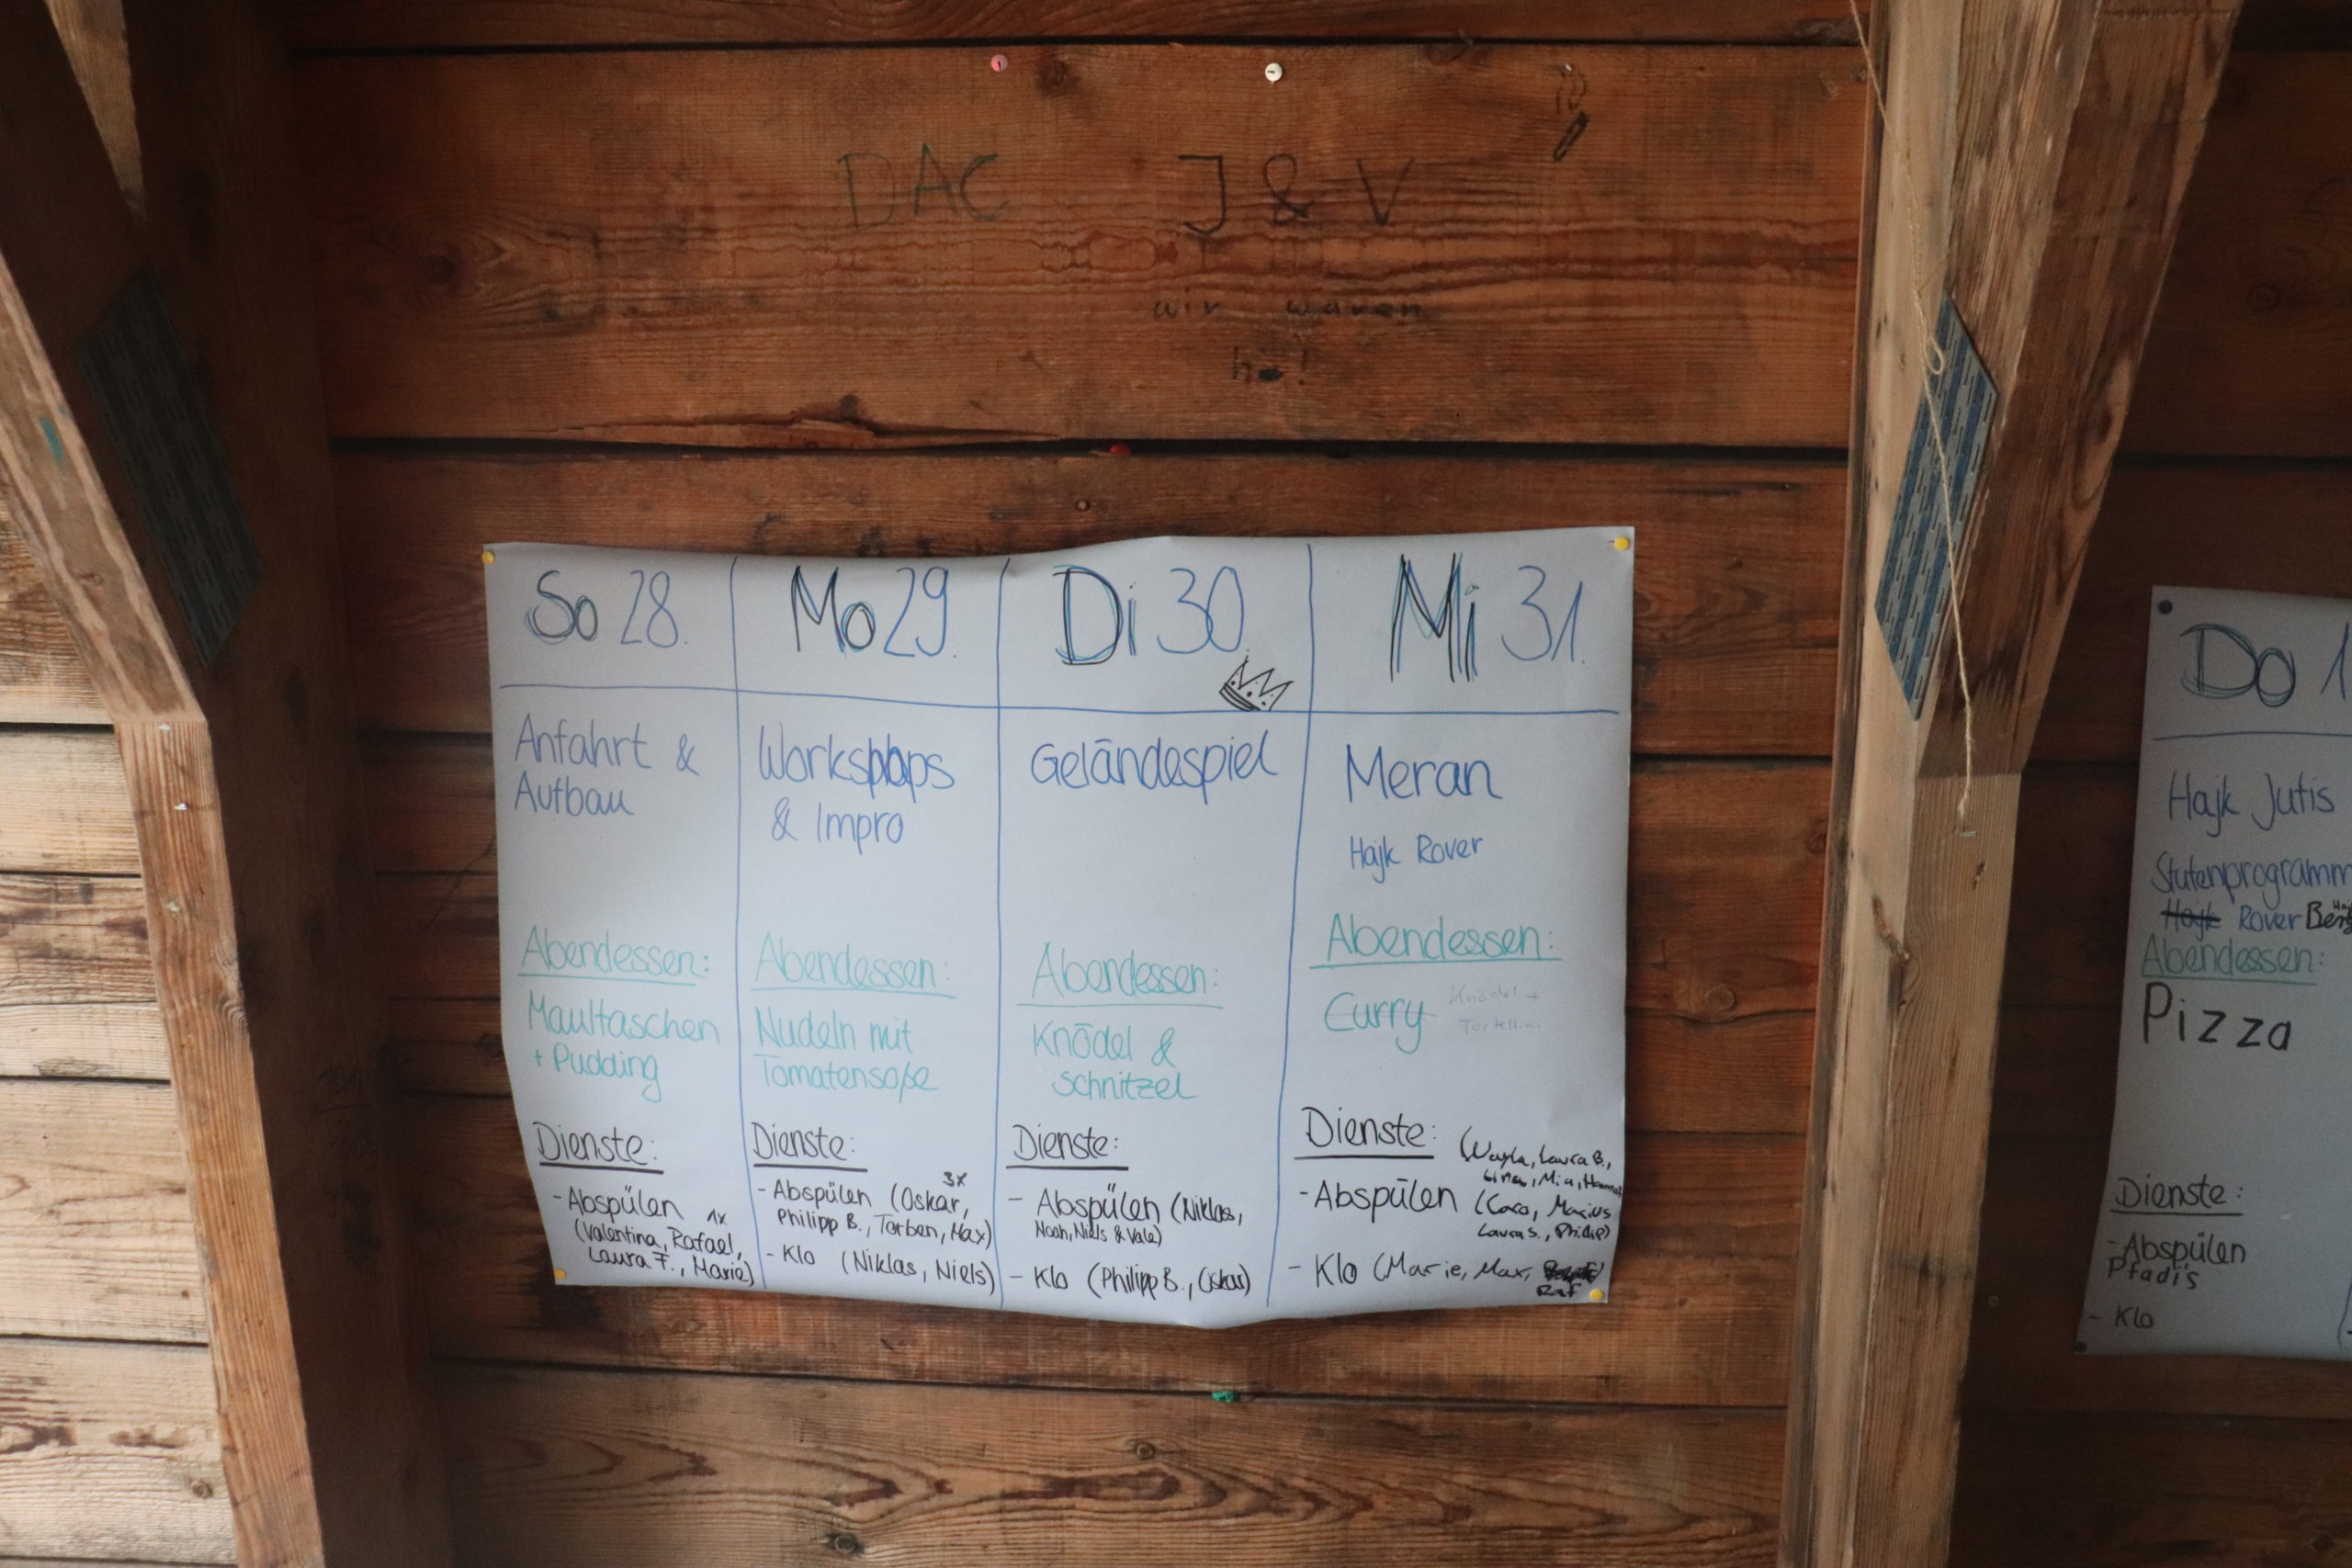 DAC J & V
wir waren
So 28.
Anfahrt &
Aufbau
Abendessen:
Maultaschen
+ Pudding
Dienste:
- Abspülen
1x
(Valentina, Rafael,
Laura F., Marie)
Mo 29.
Workshops
& Impro
Abendessen:
Nudeln mit
Tomatensoße
Dienste:
3x
- Abspülen (Oskar,
Philipp B., Torben, Max)
- Klo (Niklas, Niels)
Di 30.
Geländespiel
Abendessen:
Knödel &
Schnitzel
Dienste:
- Abspülen (Niklas,
Noah, Niels & Vale)
- Klo (Philipp B., Oskar)
Mi 31.
Meran
Hajk Rover
Abendessen:
Curry Knödel +
Tortellini
Dienste:
Laura B.,
Lina, Mia,
- Abspülen (Caro, Marius
Laura S., Philip)
- Klo (Marie, Max,
Raf
Do 1
Hajk Jufis
Stufenprogramm
Hajk Rover
Abendessen:
Pizza
Dienste:
- Abspülen
Pfadis
- Klo